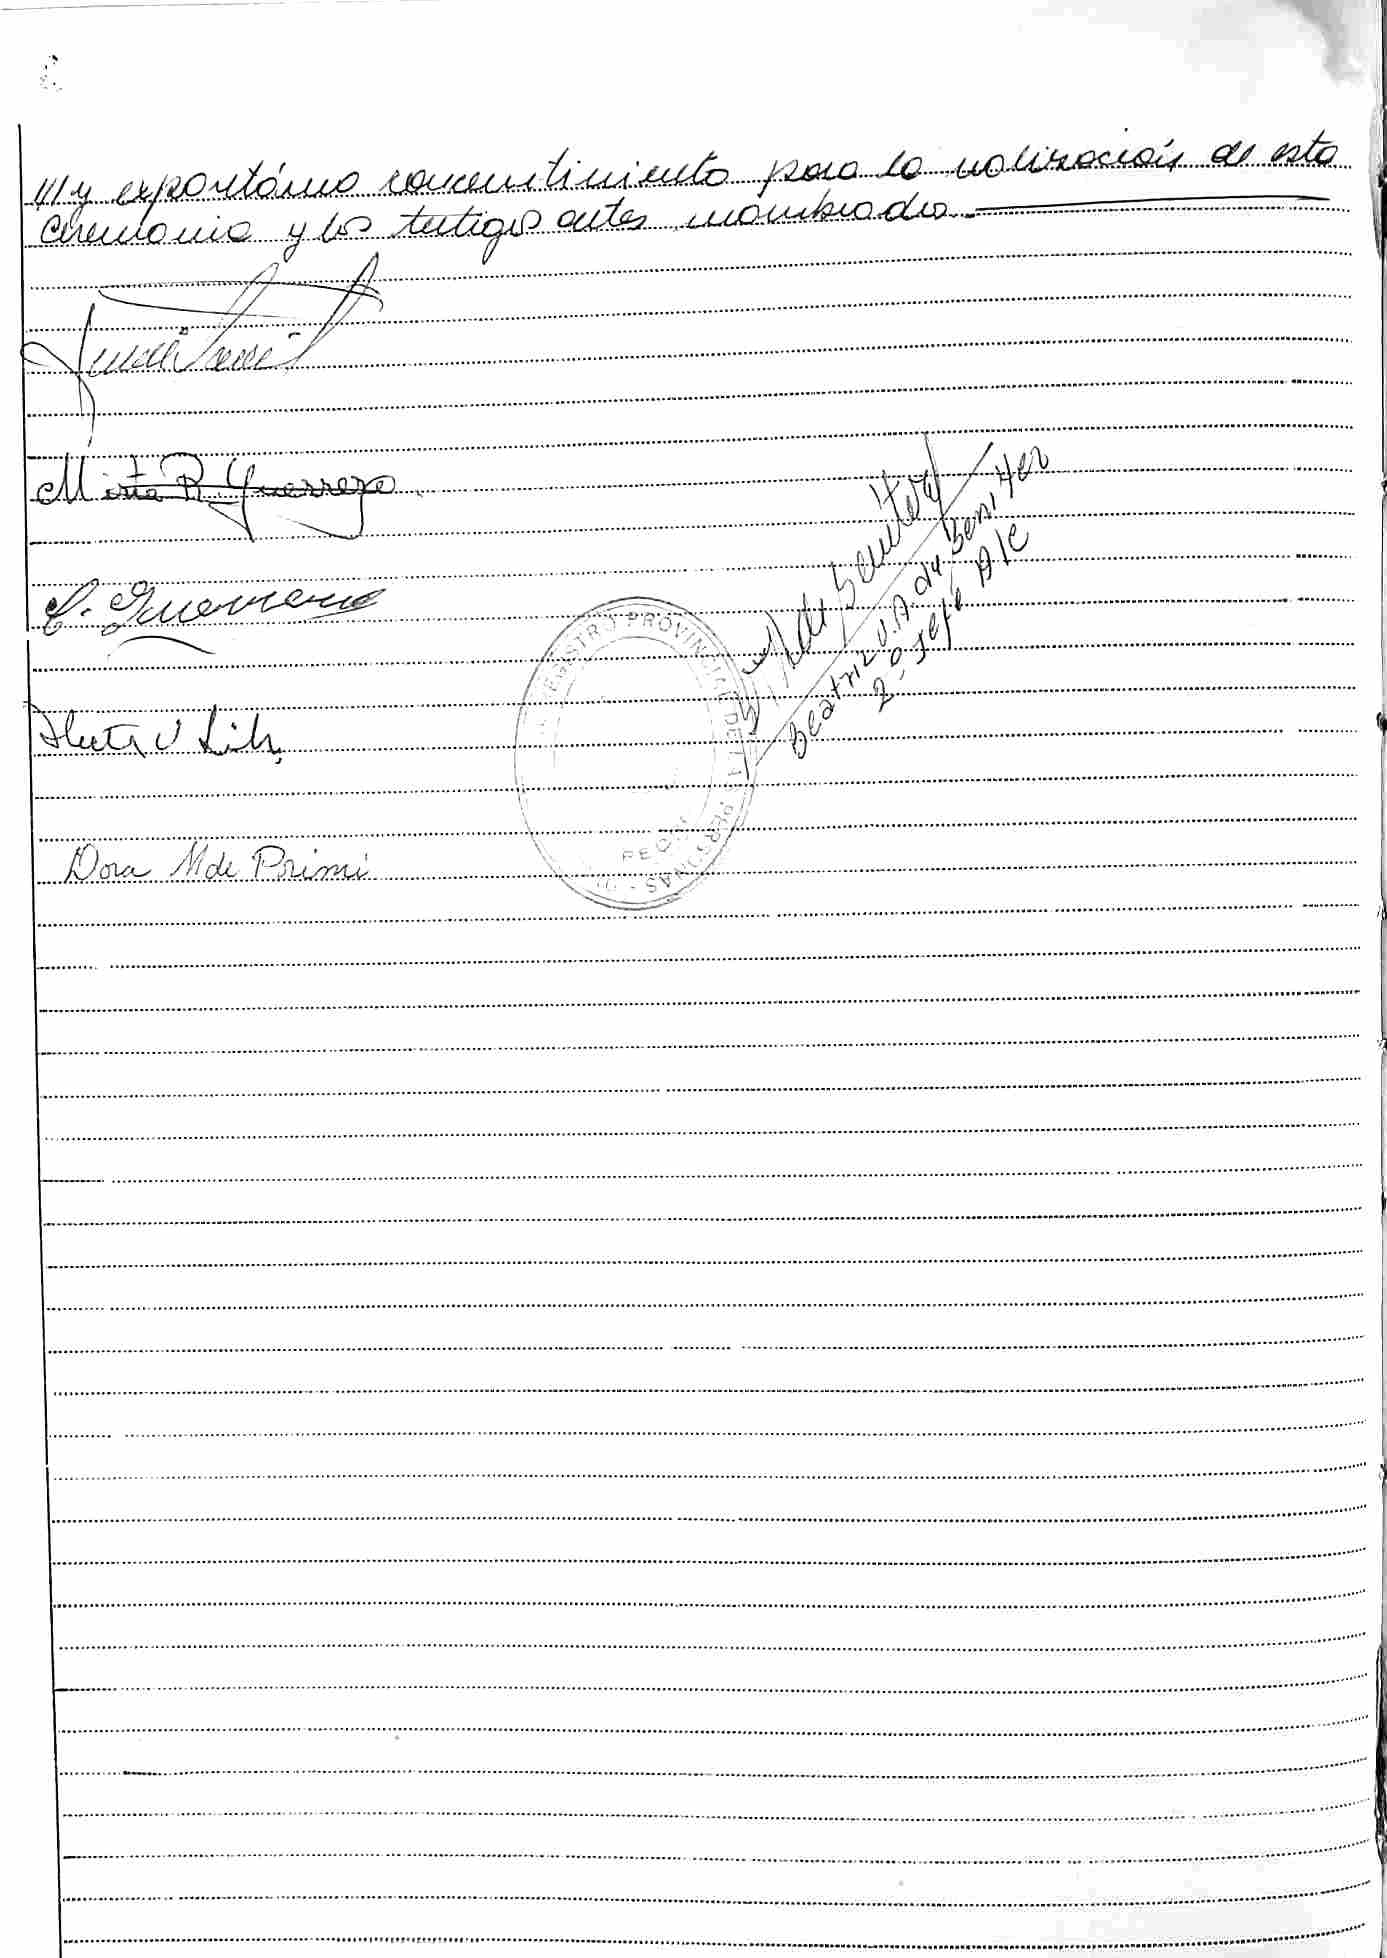 ///y expontáneo concentimiento para la realización de esta
ceremonia y los testigos antes nombrados.
Mirta R. Guerrero
C. Guerrero
Dora M de Primi
REGISTRO PROVINCIAL DE LAS PERSONAS
de Benitez
Beatriz V. A. de Benitez
2º Jefe A/C